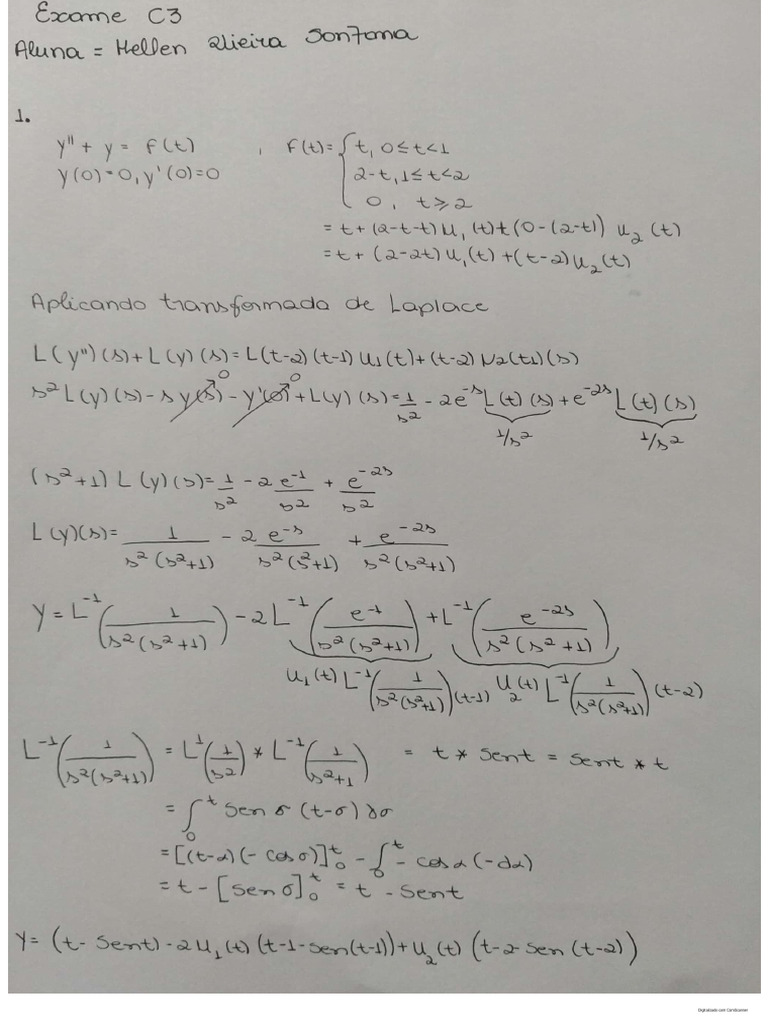 Exame C3
Aluna = Hellen Vieira Santana
1.
y'' + y = f(t) , f(t) = { t, 0 ≤ t < 1
y(0) = 0, y'(0) = 0
2-t, 1 ≤ t < 2
0, t ≥ 2
= t + (2-t-t) u₁(t) + (0-(2-t)) u₂(t)
= t + (2-2t) u₁(t) + (t-2) u₂(t)
Aplicando transformada de Laplace
L(y'')(s) + L(y)(s) = L(t-2)(t-1) u₁(t) + (t-2) u₂(t1)(s)
s² L(y)(s) - s y(s) - y'(0) + L(y)(s) = 1/s² - 2e^-s L(t)(s) + e^-2s L(t)(s)
0 0
1/s² 1/s²
(s²+1) L(y)(s) = 1/s² - 2 e^-1/s² + e^-2s/s²
L(y)(s) = 1/s²(s²+1) - 2 e^-s/s²(s²+1) + e^-2s/s²(s²+1)
y = L^-1(1/s²(s²+1)) - 2L^-1(e^-1/s²(s²+1)) + L^-1(e^-2s/s²(s²+1))
u₁(t) L^-1(1/s²(s²+1))(t-1) u₂(t) L^-1(1/s²(s²+1))(t-2)
L^-1(1/s²(s²+1)) = L^1(1/s²) * L^-1(1/s²+1) = t * sent = sent * t
= ∫₀^t sen σ (t-σ) dσ
= [(t-α)(-cos σ)]₀^t - ∫₀^t - cos α (-dα)
= t - [sen σ]₀^t = t - sent
y = (t - sent) - 2u₁(t) (t-1-sen(t-1)) + u₂(t) (t-2-sen(t-2))
Digitalizado com CamScanner